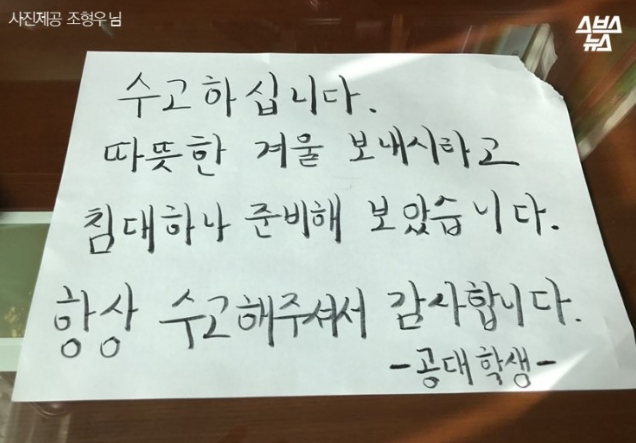 사진제공 조형우 님
스브스
뉴스
수고하십니다.
따뜻한 겨울 보내시라고
침대하나 준비해 보았습니다.
항상 수고해주셔서 감사합니다.
-공대학생-